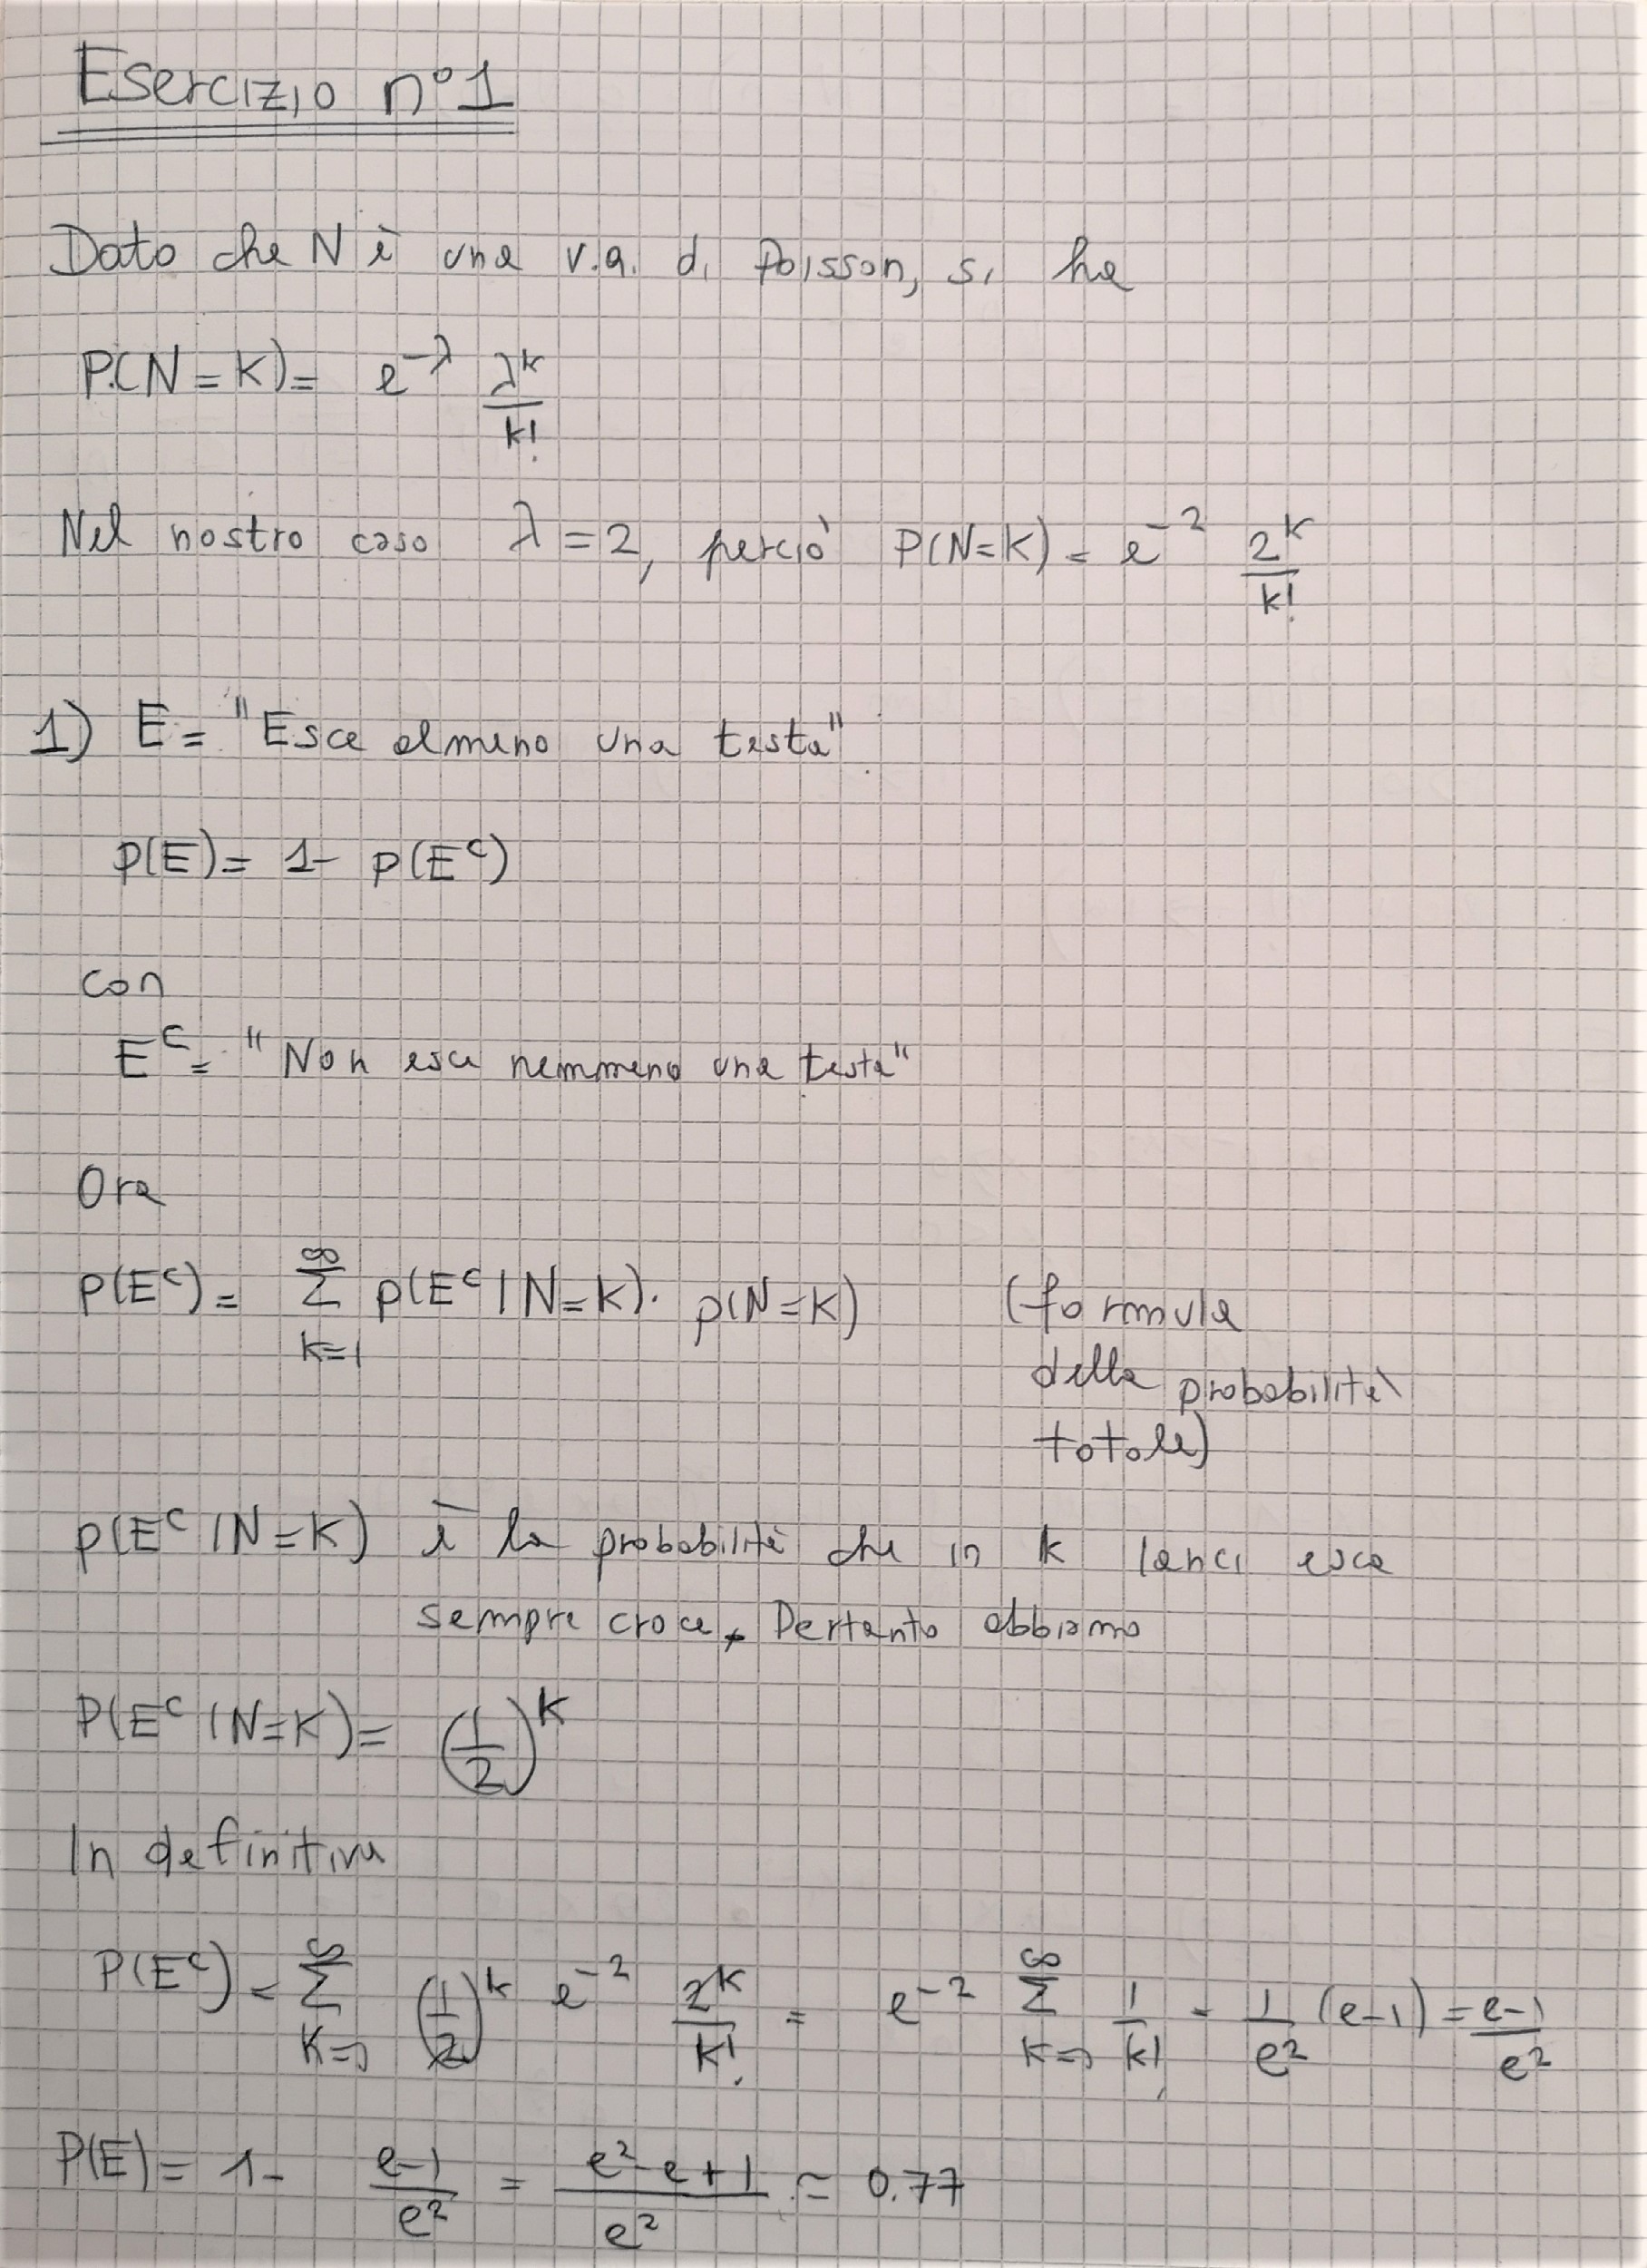 Esercizio n°1
Dato che N è una v.a. di Poisson, si ha
P(N=K)= e^{-λ} λ^k/k!
Nel nostro caso λ=2, perciò P(N=K)= e^{-2} 2^k/k!
1) E= "Esce almeno una testa"
P(E)= 1- P(E^c)
con
E^c= "Non esce nemmeno una testa"
Ora
P(E^c)= ∑_{k=1}^{∞} P(E^c|N=K)· P(N=K) (formula
della probabilità
totale)
P(E^c|N=K) è la probabilità che in k lanci esca
sempre croce. Pertanto abbiamo
P(E^c|N=K)= (1/2)^k
In definitiva
P(E^c)= ∑_{K=1}^{∞} (1/2)^k e^{-2} 2^k/k! = e^{-2} ∑_{K=1}^{∞} 1/k! = 1/e² (e-1) = e-1/e²
P(E)= 1- e-1/e² = e²-e+1/e² ≃ 0.77